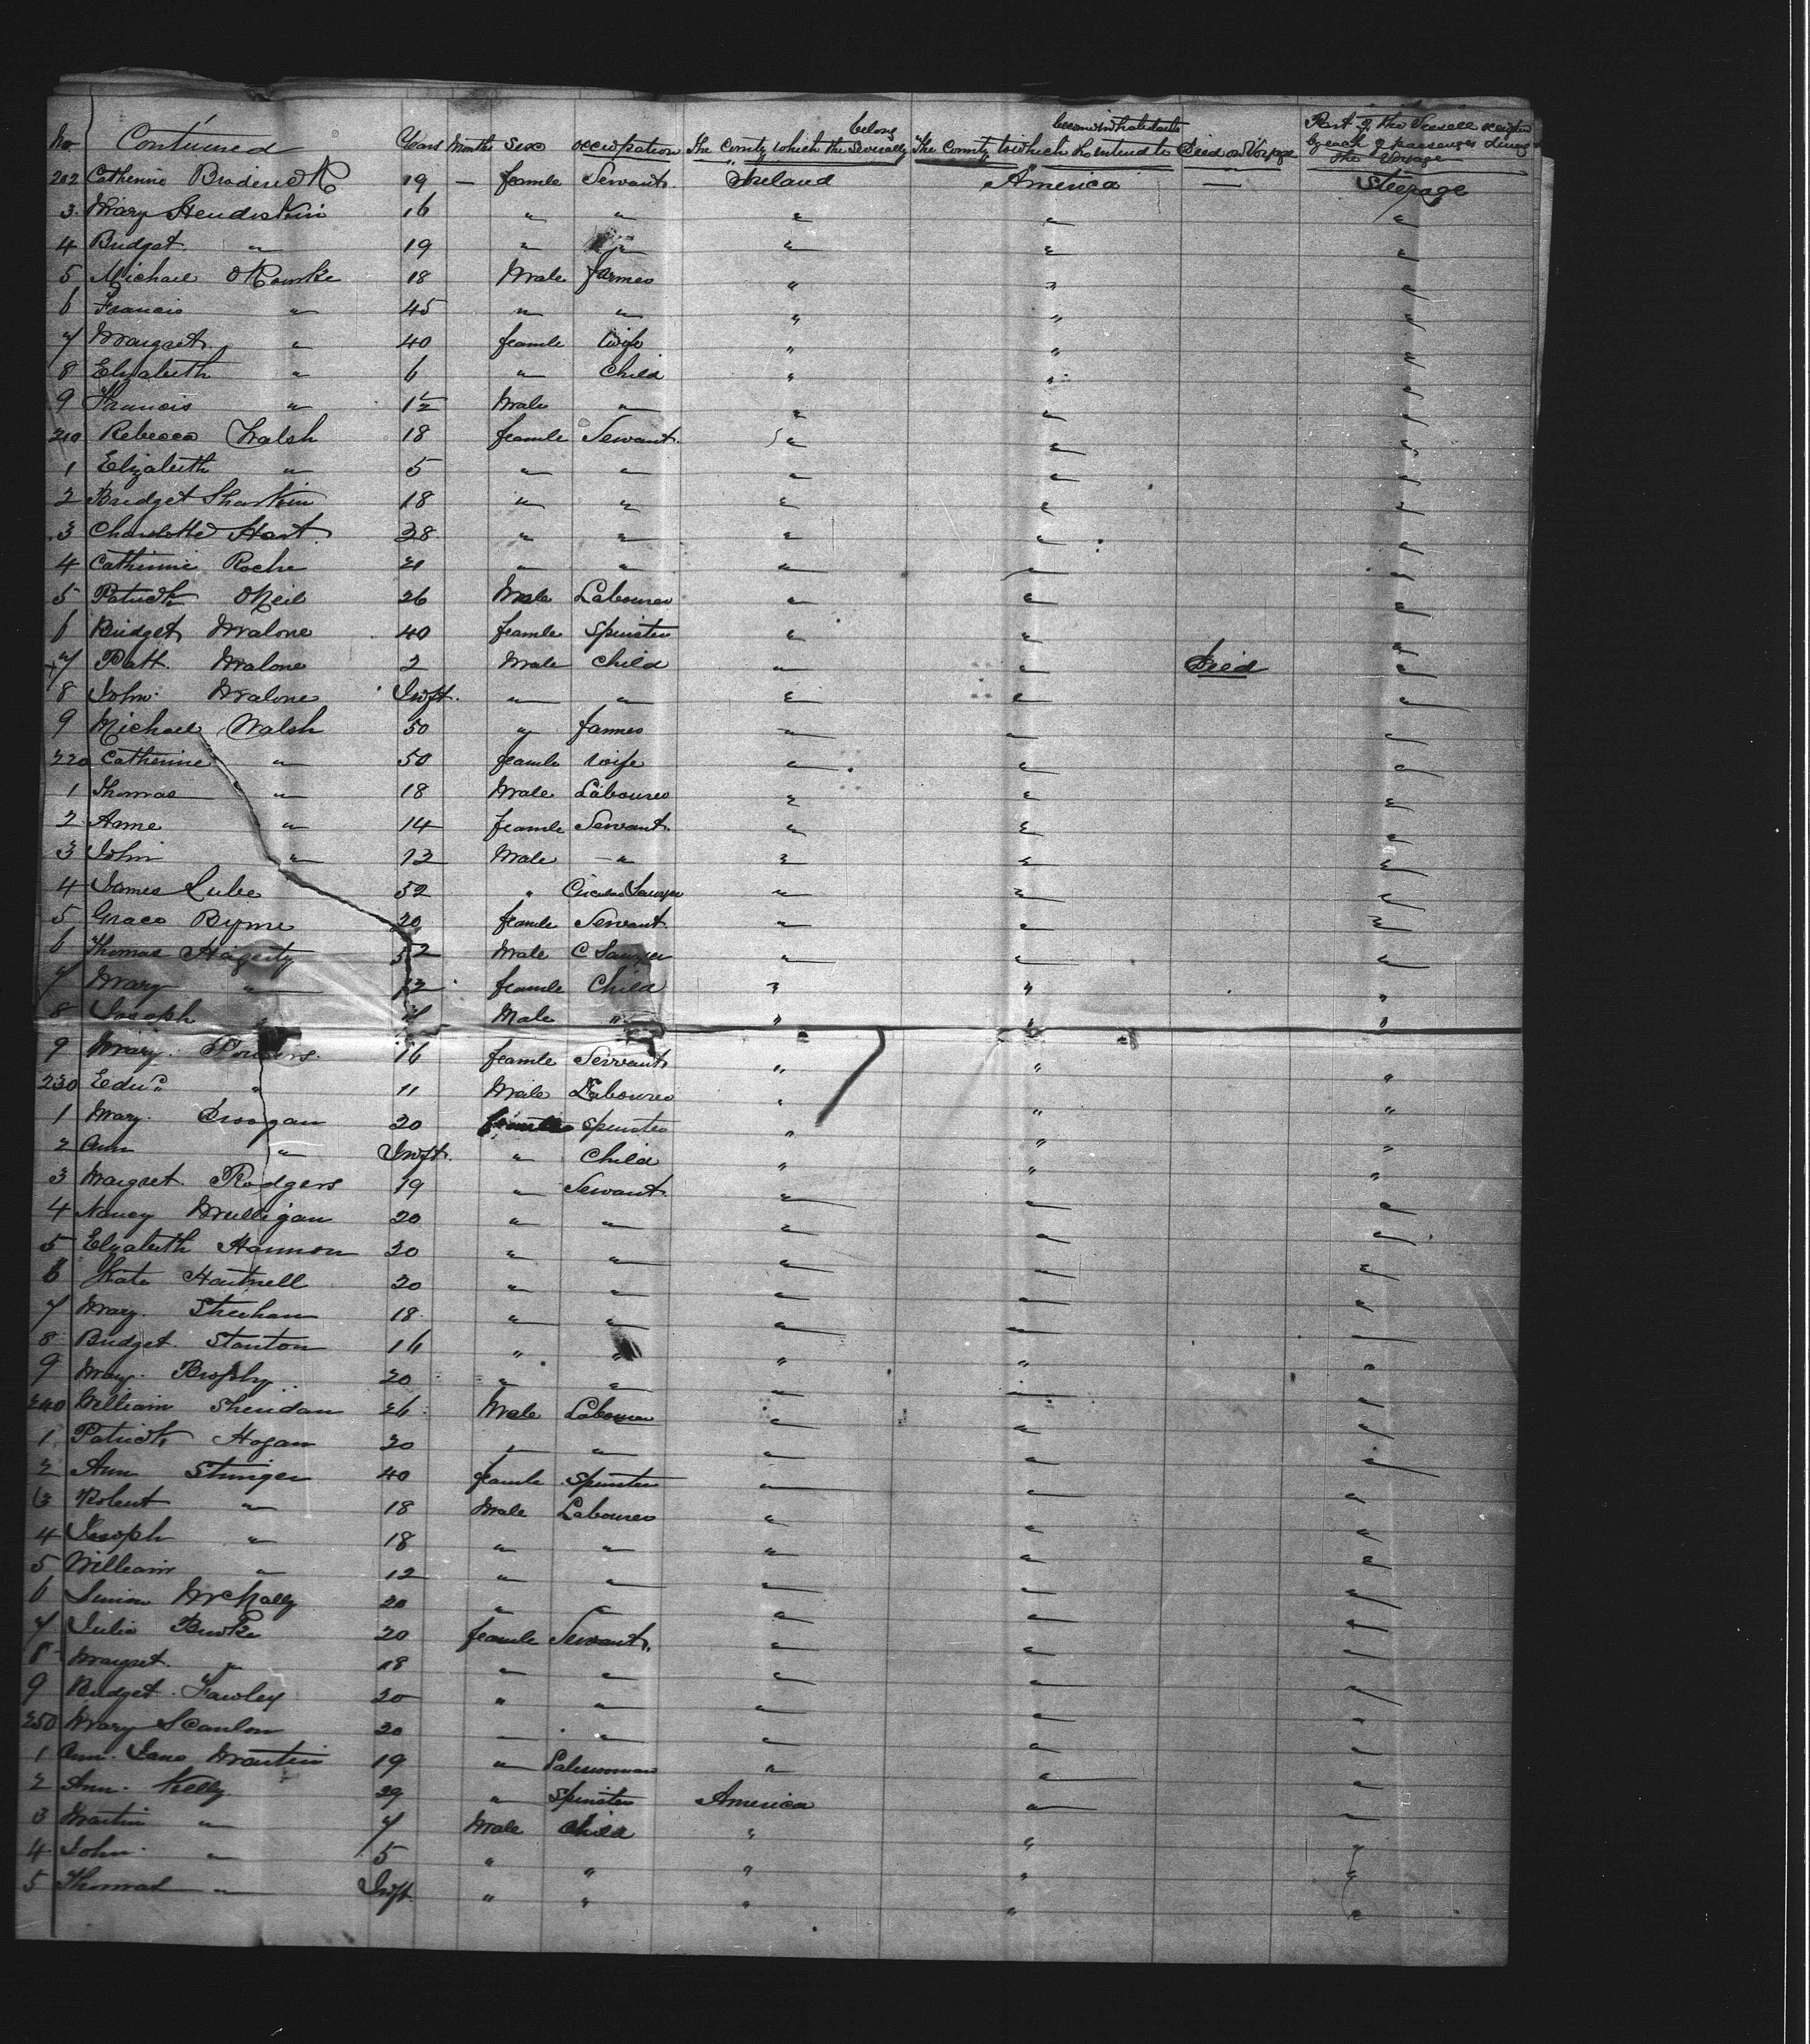 No Continued Years Months Sex occupation The County which the Severally belong The County to which the intend to become inhabitants Died on Voyage Part of the Vessell occupied by each of passenger during the Voyage
202 Catherine Broderick 19 — feamle Servant Ireland America — Steerage
3 Mary 16 " " " " "
4 Bridget " 19 " " " " "
5 Michael ORourke 18 Male farmer " " "
6 Francis " 45 " " " " "
7 Margret " 40 feamle Wife " " "
8 Elizabeth " 6 " Child " " "
9 Francis " 1½ Male " " " "
210 Rebecca Walsh 18 feamle Servant " " "
1 Elizabeth " 5 " " " " "
2 Bridget Sharkin 18 " " " " "
3 Charlotte Hart 28 " " " " "
4 Catherine Roche 21 " " " " "
5 Patrick ONeil 26 Male Labourer " " "
6 Bridget Malone 40 feamle Spinster " " "
7 Patt Malone 2 Male Child " " Died "
8 John Malone Inft " " " " "
9 Michael Walsh 50 " farmer " " "
220 Catherine " 50 feamle wife " " "
1 Thomas " 18 Male Labourer " " "
2 Anne " 14 feamle Servant " " "
3 John " 12 Male " " " "
4 James Lube 52 " Circular Sawyer " " "
5 Grace Byrne 20 feamle Servant " " "
6 Thomas Hagerty 52 Male C Sawyer " " "
7 Mary " 12 feamle Child " " "
8 Joseph 11 Male " " " "
9 Mary Powers 16 feamle Servant " " "
230 Edwd " 11 Male Labourer " " "
1 Mary Croogan 20 feamle Spinster " " "
2 Ann " Inft " Child " " "
3 Margret Rodgers 19 " Servant " " "
4 Nancy Mulligan 20 " " " " "
5 Elizabeth Hannon 20 " " " " "
6 Kate Hartnell 20 " " " " "
7 Mary Sheehan 18 " " " " "
8 Bridget Stanton 16 " " " " "
9 Mary Brophy 20 " " " " "
240 William Sheridan 26 Male Labourer " " "
1 Patrick Hogan 20 " " " " "
2 Ann Stringer 40 feamle Spinster " " "
3 Robert " 18 Male Labourer " " "
4 Joseph " 18 " " " " "
5 William " 12 " " " " "
6 Simon McNally 20 " " " " "
7 Julia Burke 20 feamle Servant " " "
8 Margret " 18 " " " " "
9 Bridget Fawley 20 " " " " "
250 Mary Scanlon 20 " " " " "
1 Ann Jane Martin 19 " Saleswoman " " "
2 Ann Kelly 29 " Spinster America " "
3 Martin " 7 Male Child " " "
4 John " 5 " " " " "
5 Thomas " Inft " " " " "